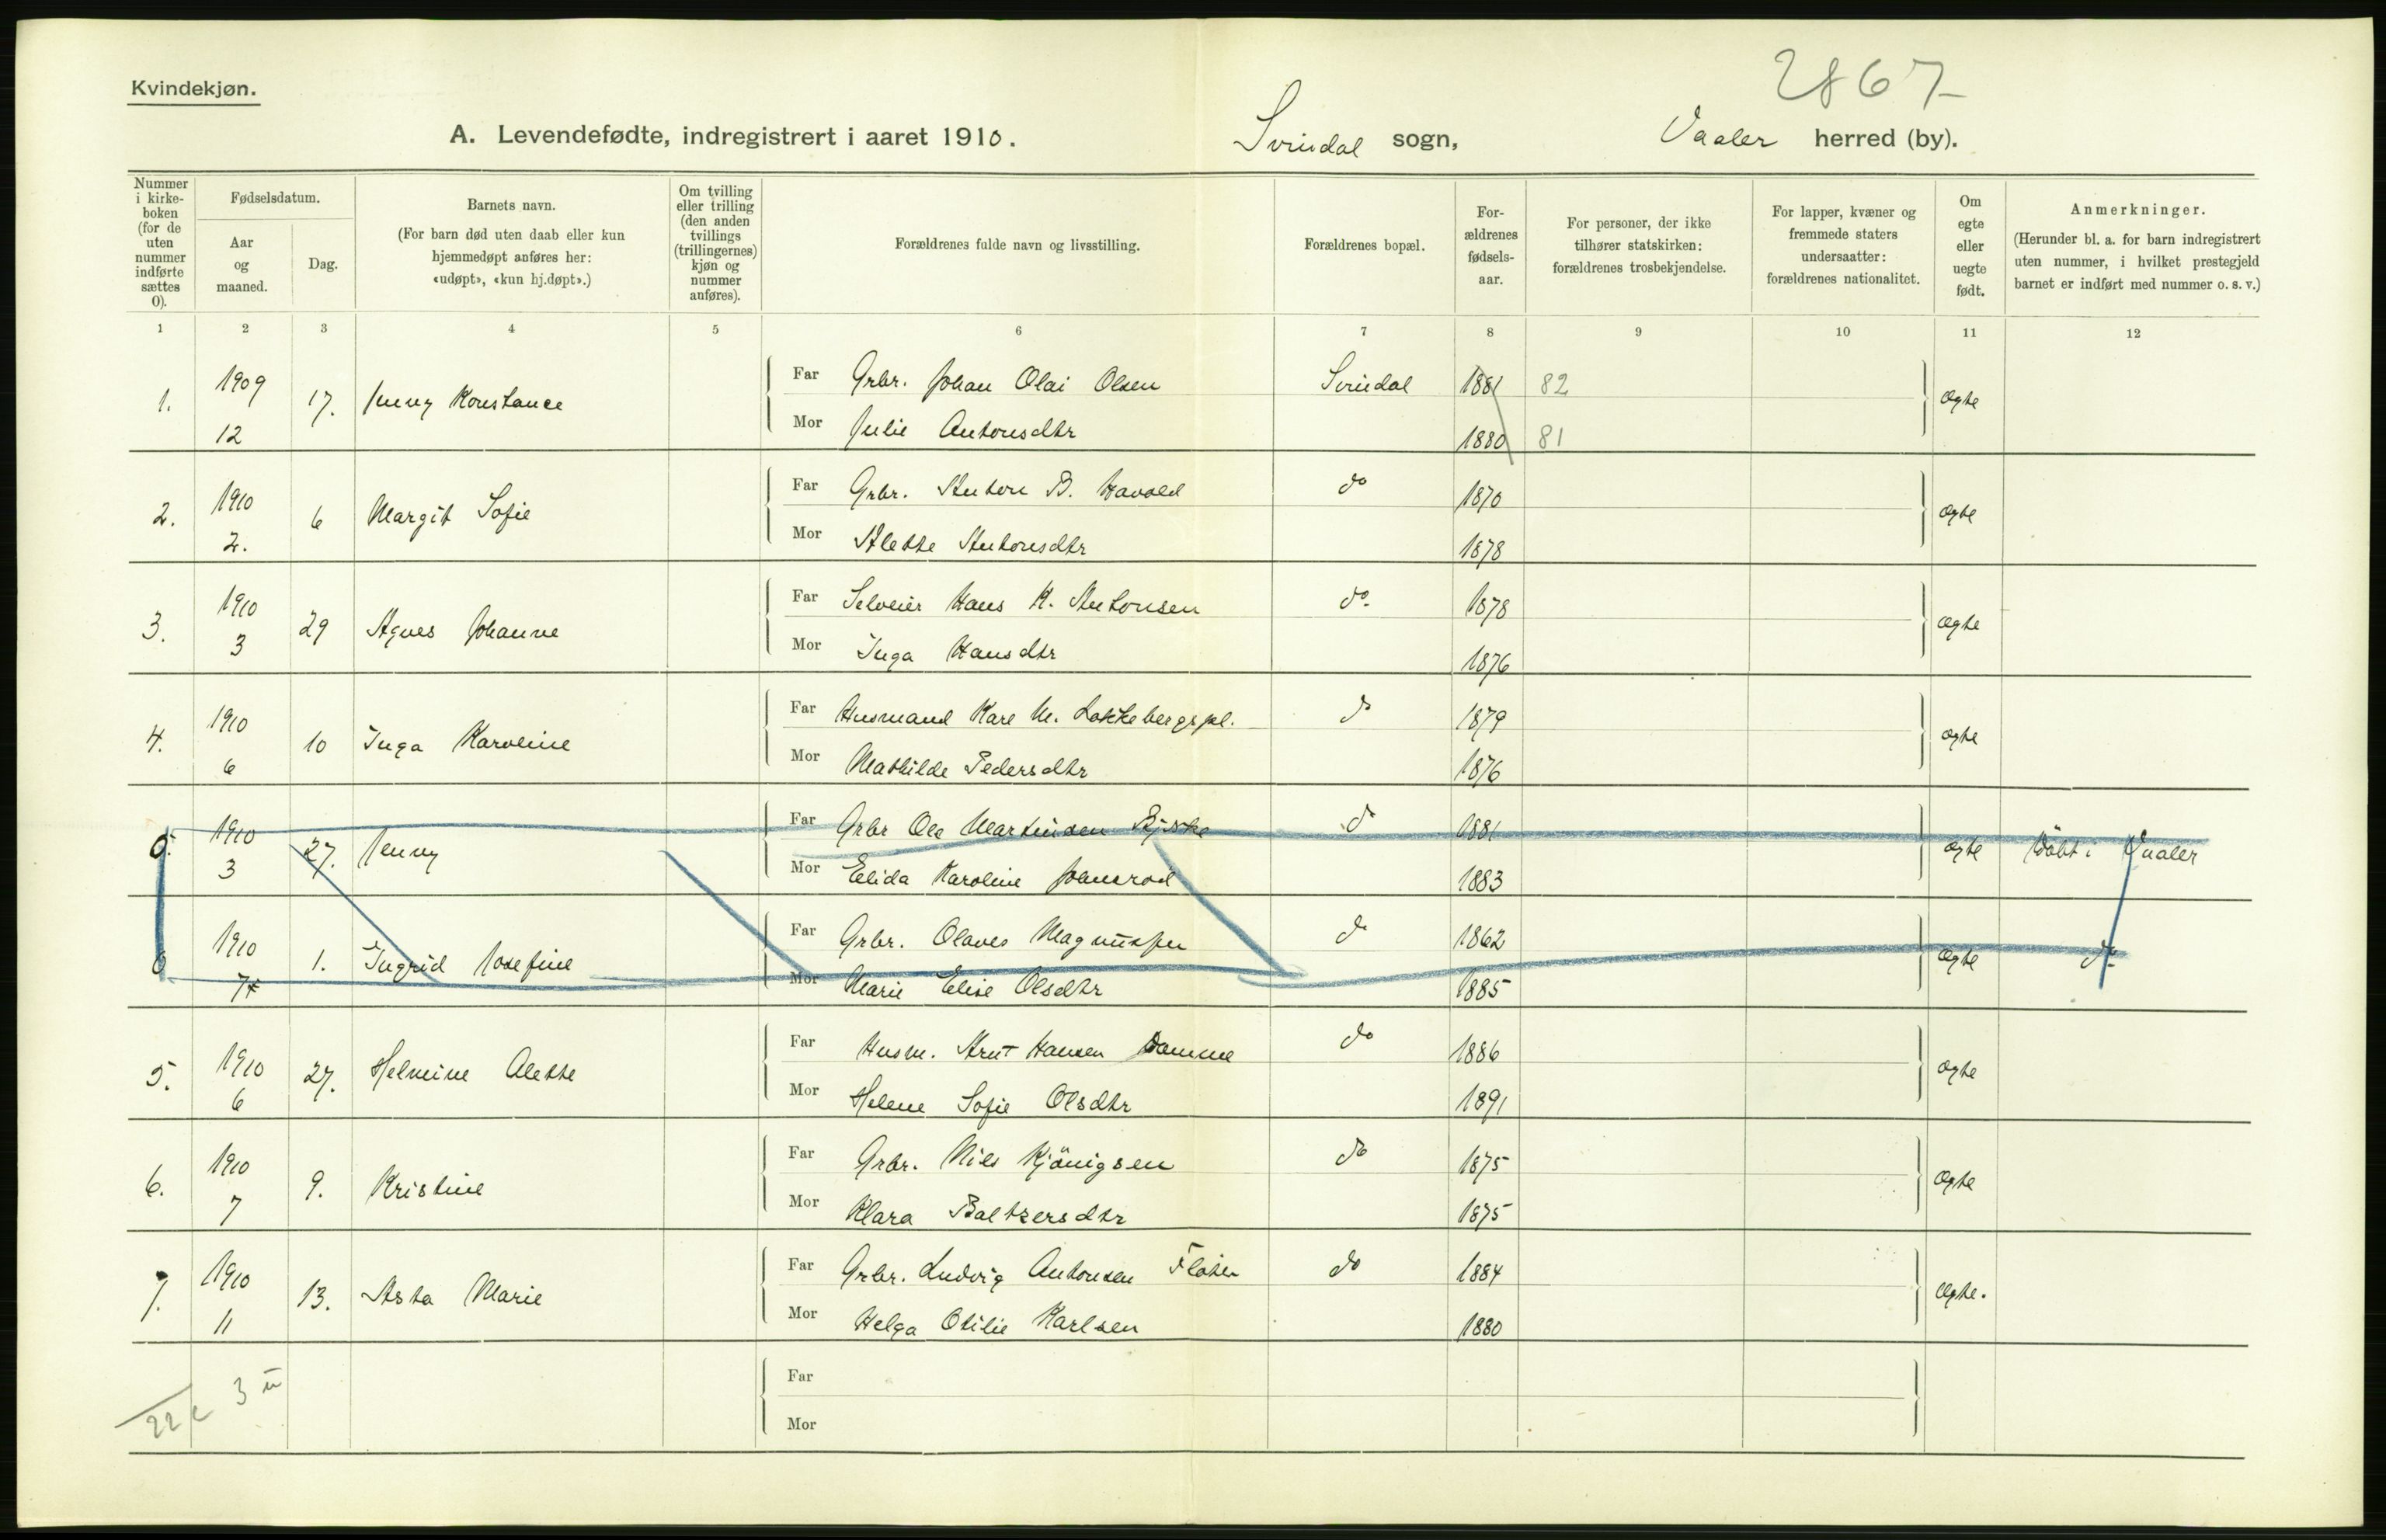 2867
Kvindekjøn.
A. Levendefødte, indregistrert i aaret 1910. Svindal sogn, Vaaler herred (by).
Nummer i kirke- boken (for de uten nummer indførte sættes 0).
Fødselsdatum.
Aar og maaned.
Dag.
Barnets navn.
(For barn død uten daab eller kun hjemmedøpt anføres her: «udøpt», «kun hj.døpt».)
Om tvilling eller trilling (den anden tvillings (trillingernes) kjøn og nummer anføres).
Forældrenes fulde navn og livsstilling.
Forældrenes bopæl.
For- ældrenes fødsels- aar.
For personer, der ikke tilhører statskirken: forældrenes trosbekjendelse.
For lapper, kvæner og fremmede staters undersaatter: forældrenes nationalitet.
Om egte eller uegte født.
Anmerkninger.
(Herunder bl. a. for barn indregistrert uten nummer, i hvilket prestegjeld barnet er indført med nummer o. s. v.)
1 2 3 4 5 6 7 8 9 10 11 12
1. 1909 12 17. Jenny Konstance
Far Grbr. Johan Olai Olsen Svindal 1881 82 ægte
Mor Julie Antonsdtr 1880 81
2. 1910 2. 6 Margit Sofie
Far Grbr. Anton B. Havold do 1870 ægte
Mor Alette Antonsdtr 1878
3. 1910 3 29 Agnes Johanne
Far Selveier Hans K. Antonsen do. 1878 ægte
Mor Inga Hansdtr 1876
4. 1910 6 10 Inga Karoline
Far Husmand Kare M. Løkkebergspl. do 1879 ægte
Mor Mathilde Pedersdtr 1876
0. 1910 3 27. Jenny
Far Grbr Ole Martinsen do 1881 ægte Döbt i Vaaler
Mor Elida Karoline Johansröd 1883
0 1910 7 1. Ingrid Josefine
Far Grbr. Olaves Magnussen do 1862 ægte do
Mor Marie Elise Olsdtr 1885
5. 1910 6 27. Helmine Alette
Far Husm. Arnt Hansen Damme do 1886 ægte
Mor Helene Sofie Olsdtr 1891
6. 1910 7 9. Kristine
Far Grbr. Nils Kjönigsen do 1875 ægte
Mor Klara Baltzersdtr 1875
7. 1910 11 13. Asta Marie
Far Grbr. Ludvig Antonsen Fløten do 1884 ægte.
Mor Helga Otilie Karlsen 1880
22 3
Far
Mor